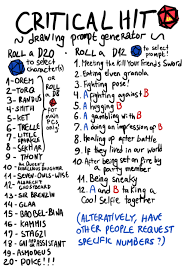 CRITICAL HIT
~ drawing prompt generator ~
ROLL A D20
to select
character(s)
OR ROLL
a D8
for your
PCs only!
1- OREM
2- TORQ
3- RANDUS
4- SMITH
5- KET
6- TRELLE
7- LITTLE
SPARKLE
8- SEKHAR
9- THONY
10-
11- SEVEN-OWLS-WISE
12-
13- SIR BRENLIN
14- GLAR
15- BADBEL-BINA
16- KAMMIS
17- STAG21
18-
19- ASMODEUS
20- DOICE!!!
ROLL A D12
to select
prompt!
1. Meeting the Kill Your Friends Sword
2. Eating elven granola
3. Fighting pose!
4. A fighting against B
5. A hugging B
6. A gambling with B
7. A doing an impression of B
8. Healing up after battle
9. If they lived in our world
10. After being set on fire by
a party member
11. Being sneaky
12. A and B taking a
Cool Selfie together
(ALTERNATIVELY, HAVE
OTHER PEOPLE REQUEST
SPECIFIC NUMBERS?)